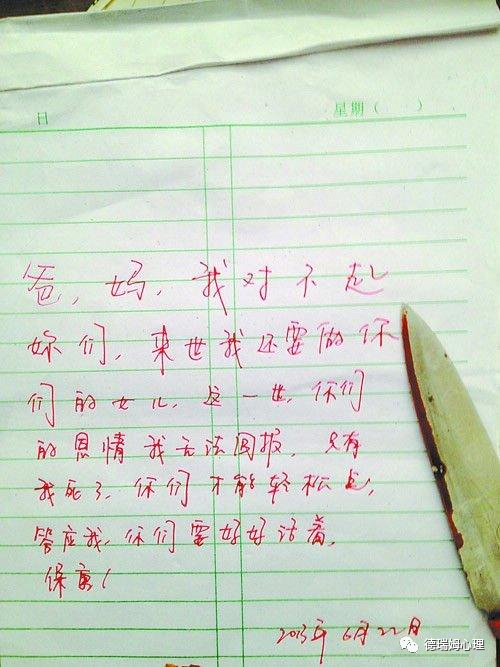 日 星期（ ）
爸，妈，我对不起
妳们，来世我还要做你
们的女儿，这一世，你们
的恩情我无法回报，只有
我死了，你们才能轻松点，
答应我，你们要好好活着，
保重！
2013年6月22日
德瑞姆心理